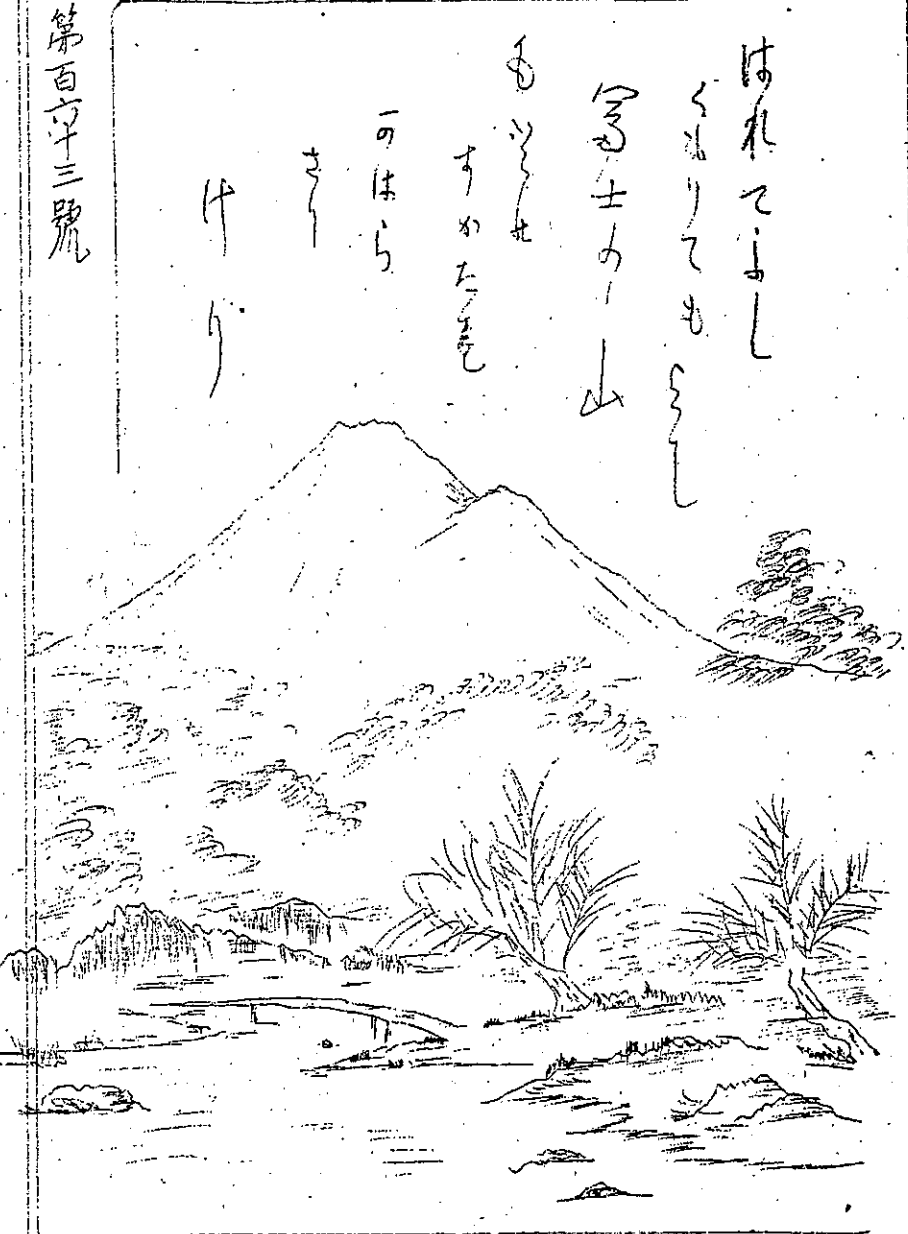 はれてよし
くもりてもよし
富士の山
もとの
すかたを
かはら
さり
けり
第百六十三號